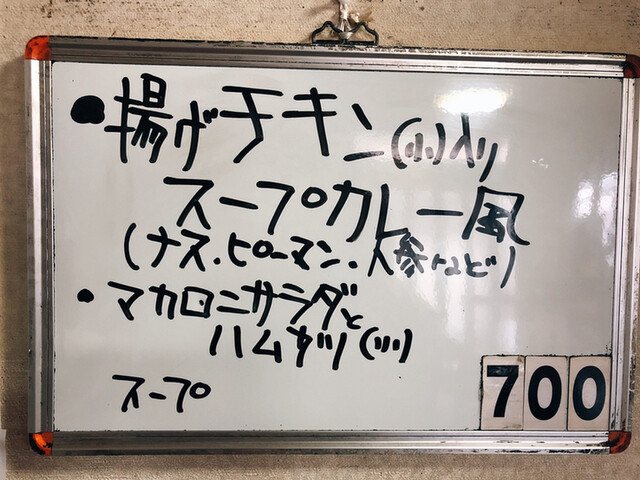 ●揚げチキン(小)入り
スープカレー風
(ナス.ピーマン.人参など)
・マカロニサラダと
ハムカツ(小)
スープ
700